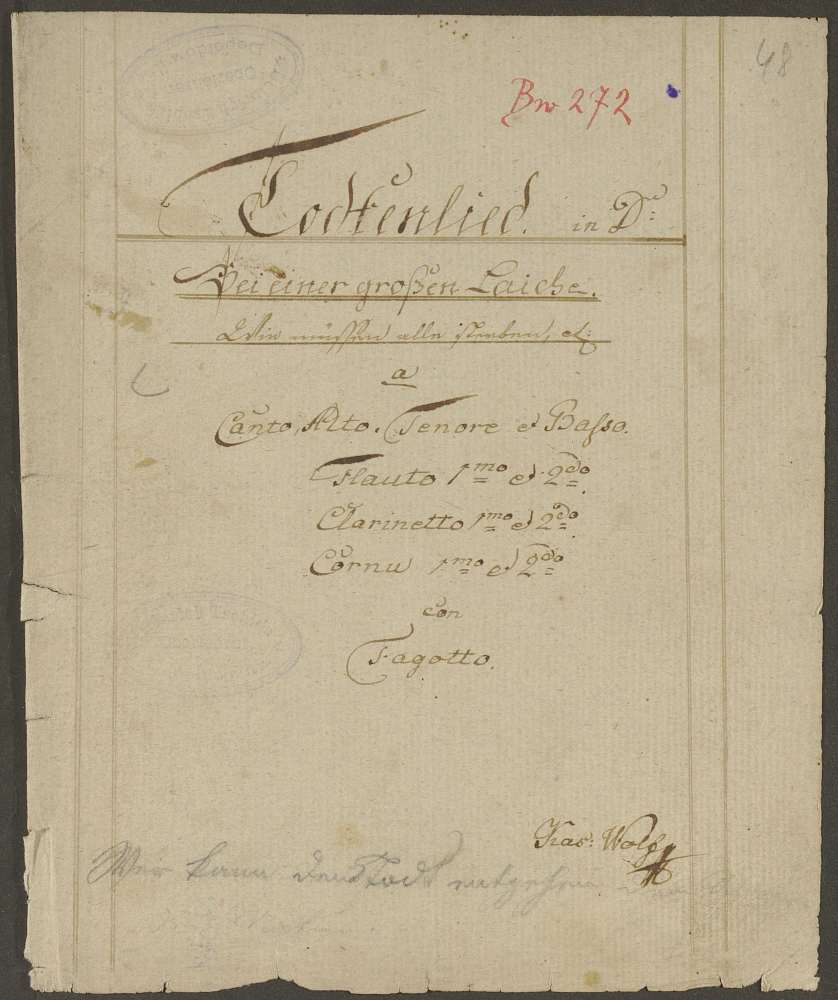 48
Bw 272
Todtenlied. in D:
Bei einer großen Laiche.
Wir müssen alle sterben, etc:
a
Canto, Alto. Tenore et Basso.
Flauto 1mo et 2do
Clarinetto 1mo et 2do
Cornu 1mo et 2do
con
Fagotto.
Kas: Wolf
Wer kann den Todt entgehen